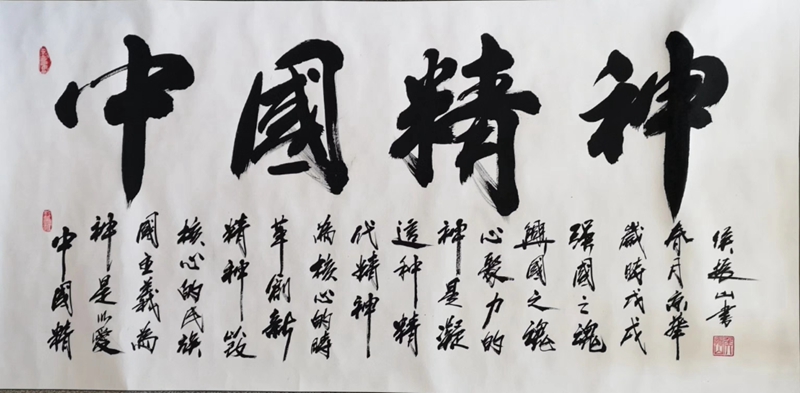 中國精神
中國精
神是以愛
國主義為
核心的民族
精神改
革創新
為核心的時
代精神
這种精
神是凝
心聚力的
興國之魂
强國之魂
歲時戊戌
春月京華
侯振山書